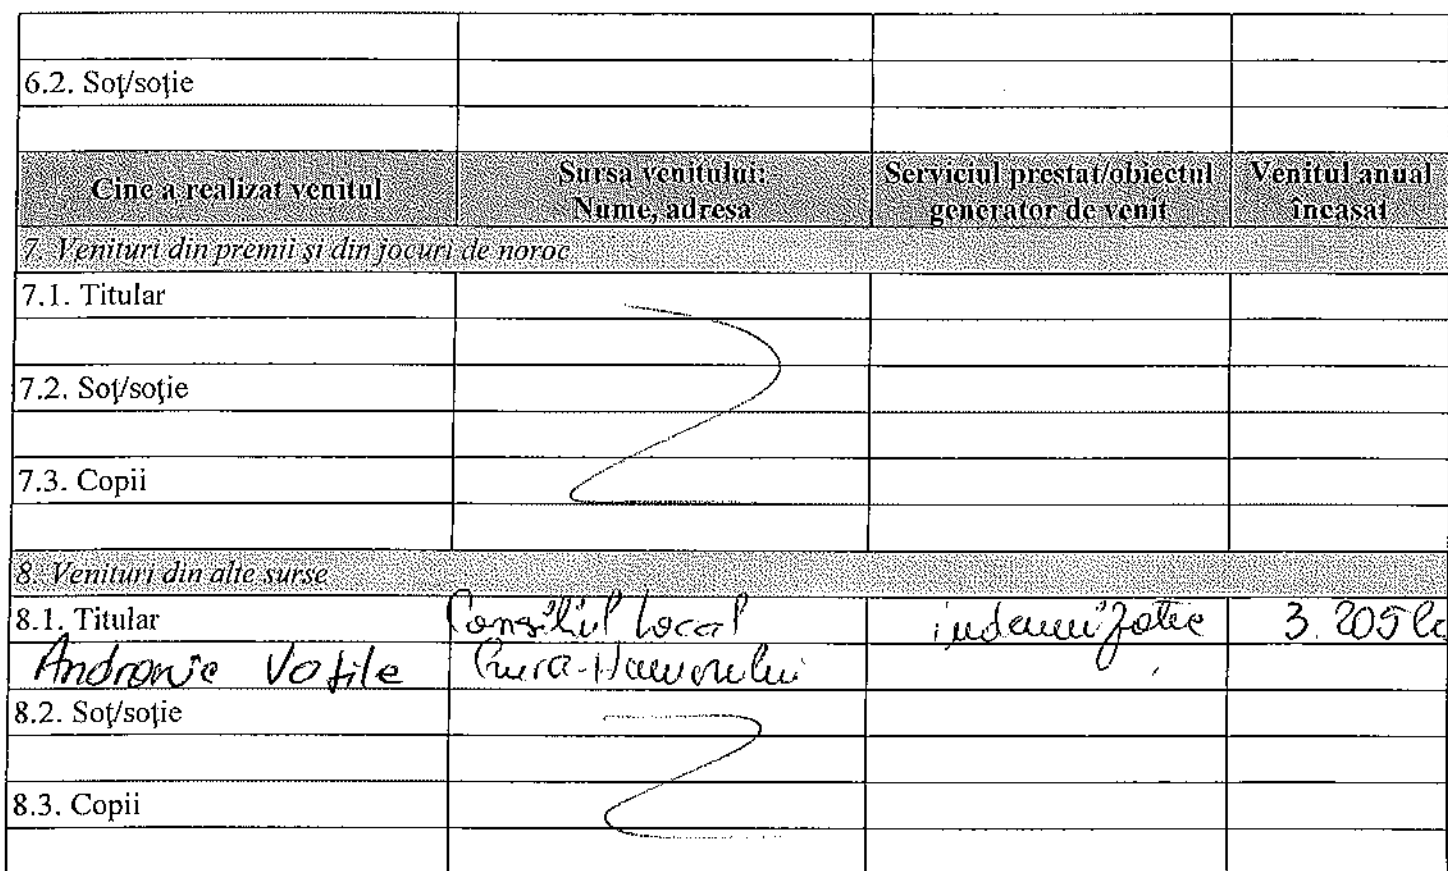 6.2. Soţ/soţie
Cine a realizat venitul
Sursa venitului:
Nume, adresa
Serviciul prestat/obiectul
generator de venit
Venitul anual
încasat
7. Venituri din premii şi din jocuri de noroc
7.1. Titular
7.2. Soţ/soţie
7.3. Copii
8. Venituri din alte surse
8.1. Titular
Consiliul Local
indemnizatie
3.205 le
Andronic Vasile
Gura-Humorului
8.2. Soţ/soţie
8.3. Copii